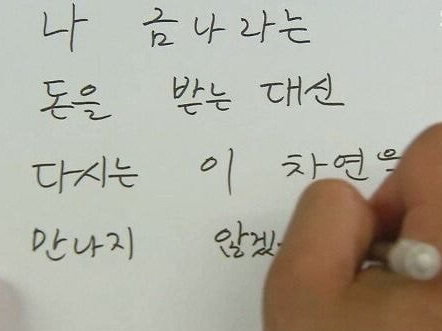 나 금나라는
돈을 받는 대신
다시는 이 차연을
만나지 않겠